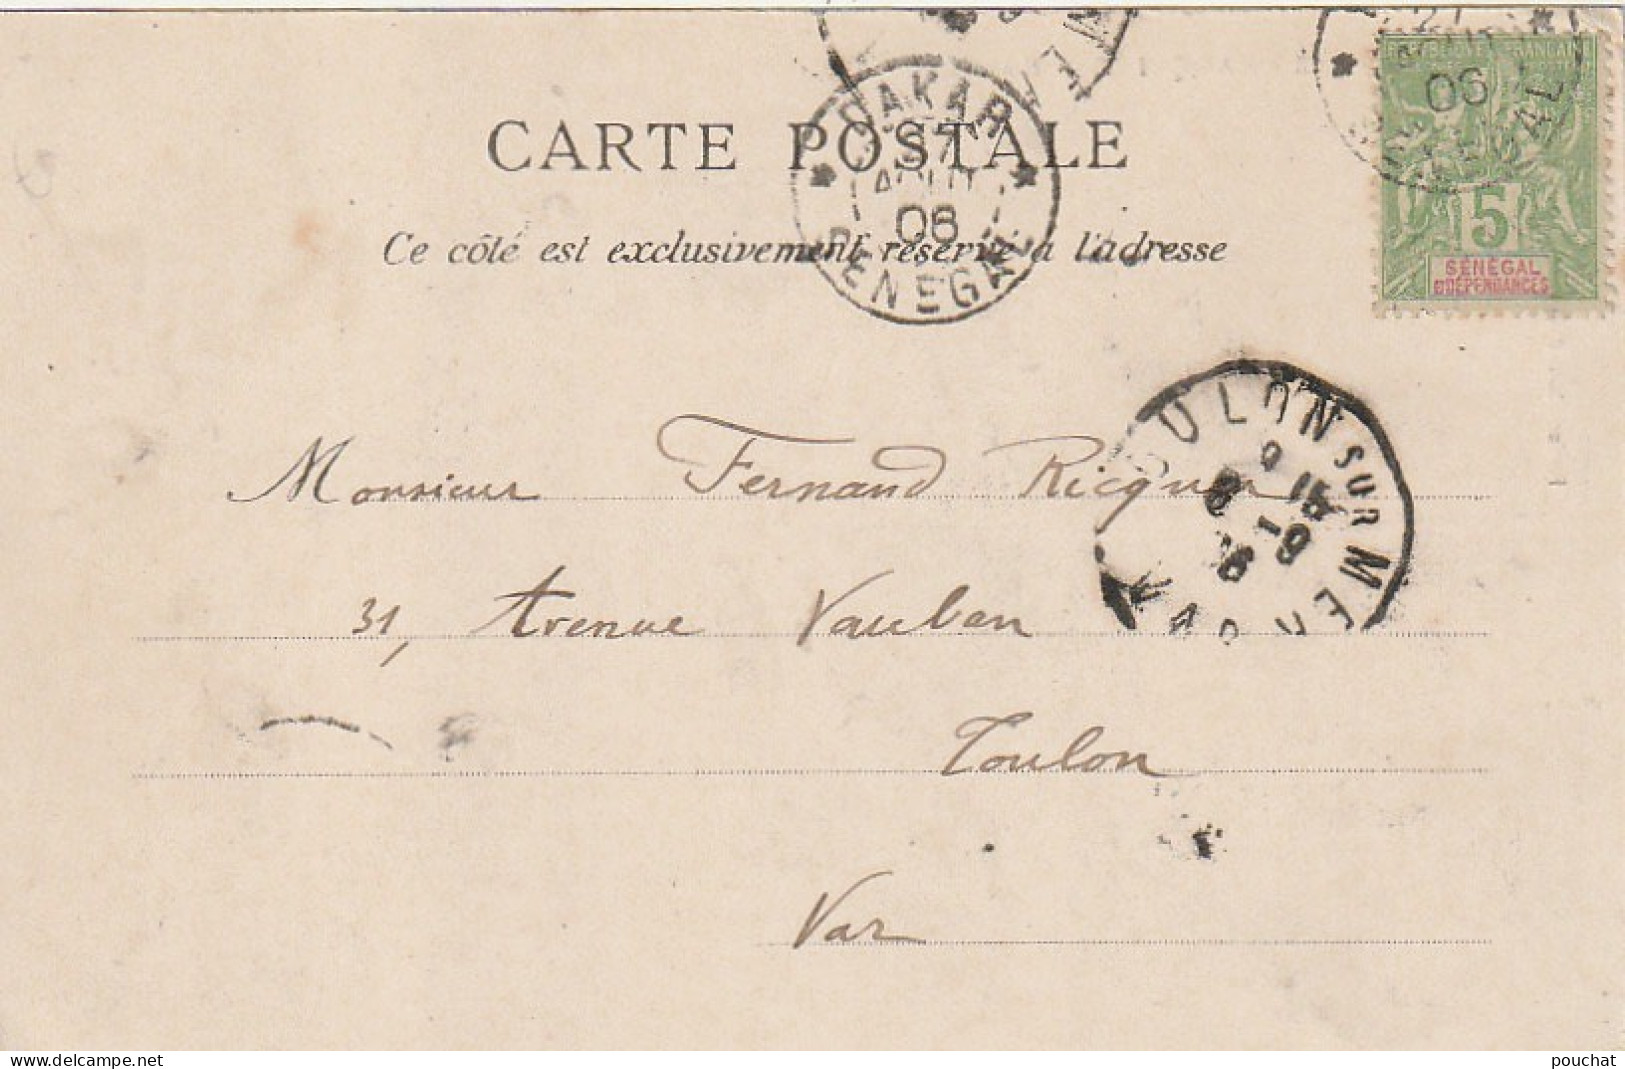 CARTE POSTALE
Ce côté est exclusivement réservé à l'adresse
DAKAR
27
AOUT
06
SENEGAL
21
AOUT
06
SENEGAL
REPUBLIQUE FRANCAISE
5
SÉNÉGAL
ET DÉPENDANCES
TOULON SUR MER
VAR
Monsieur Fernand
31, Avenue Vauban
Toulon
Var
www.delcampe.net
pouchat